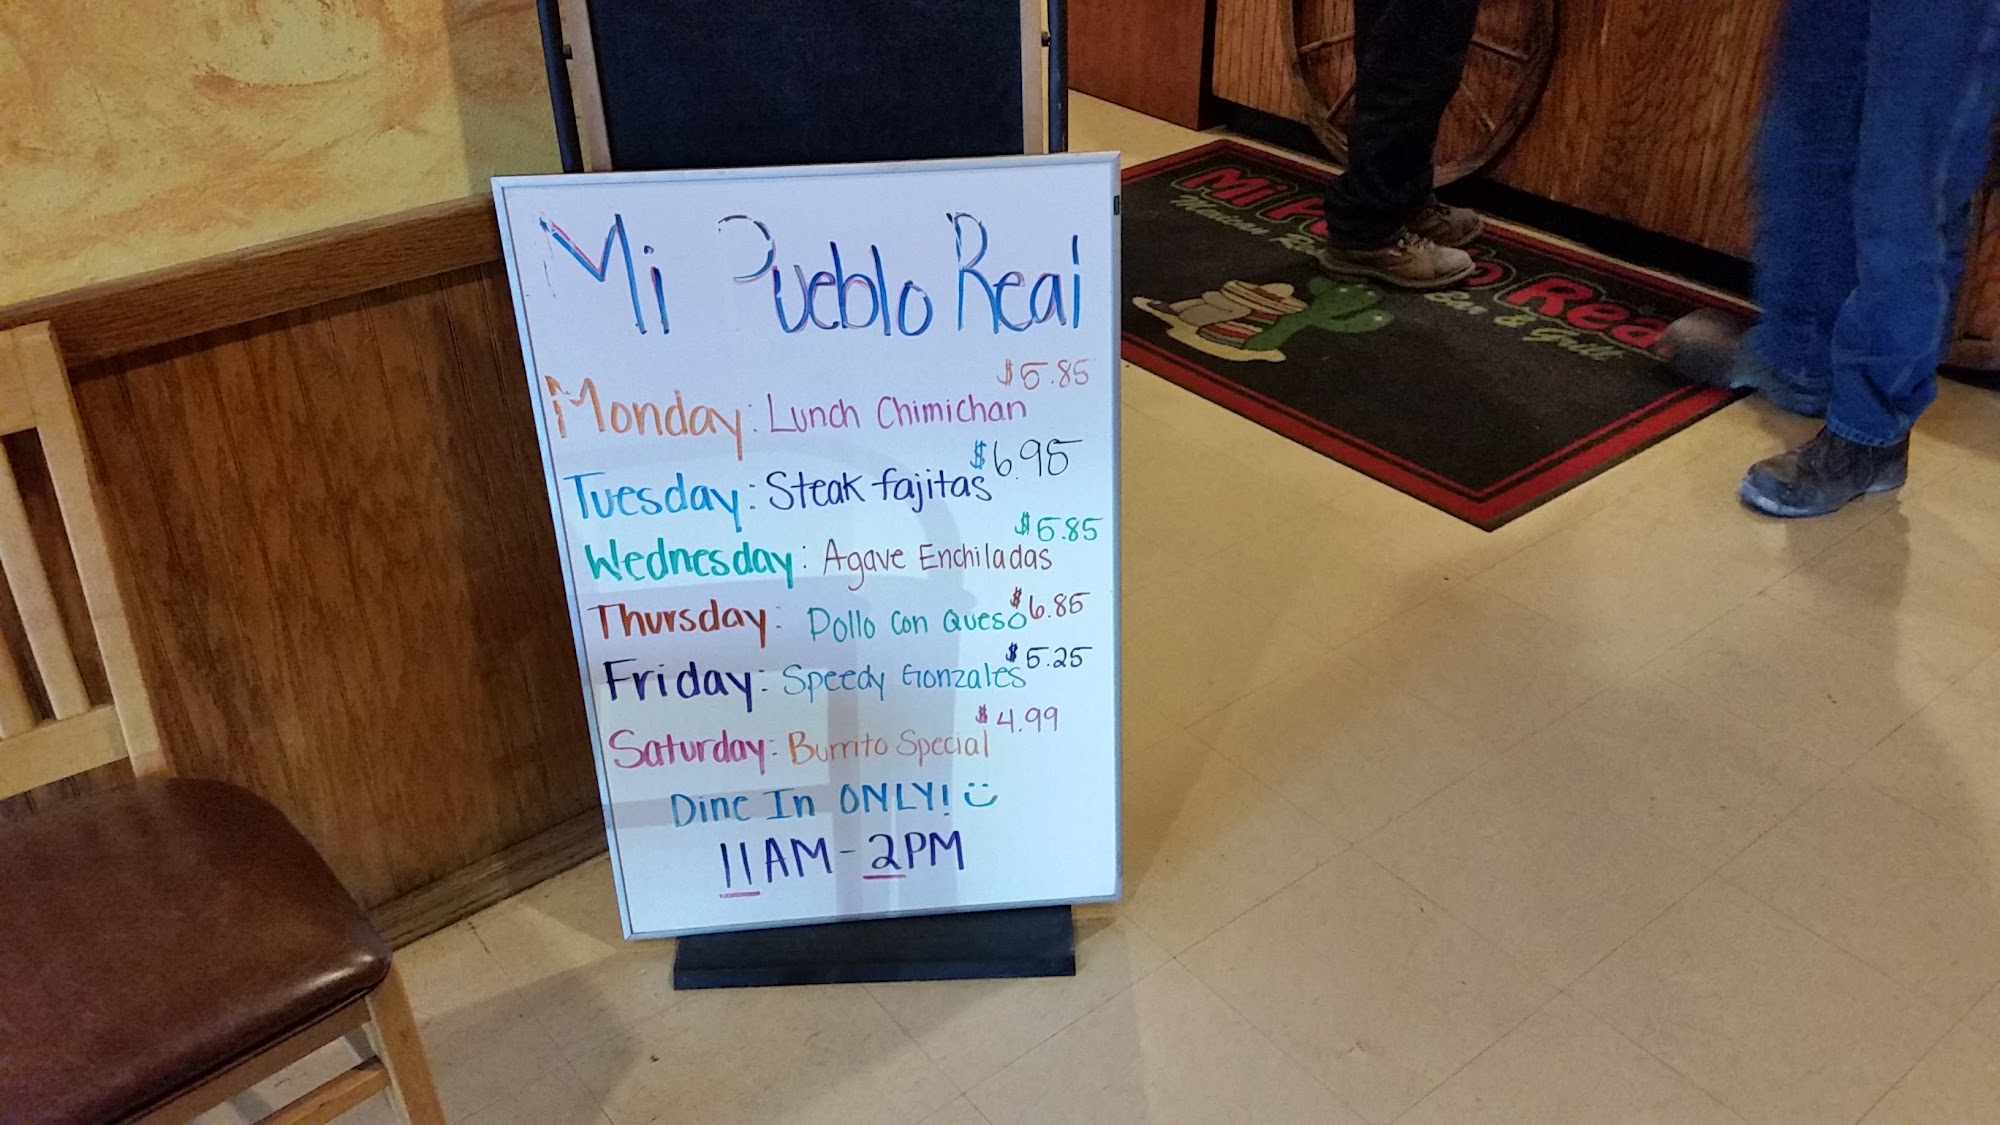 Mi Pueblo Real
Monday: Lunch Chimichan $5.85
Tuesday: Steak fajitas $6.95
Wednesday: Agave Enchiladas $5.85
Thursday: Pollo Con Queso $6.85
Friday: Speedy Gonzales $5.25
Saturday: Burrito Special $4.99
Dine In ONLY!
11AM - 2PM
Mi
Real
Bar & Grill